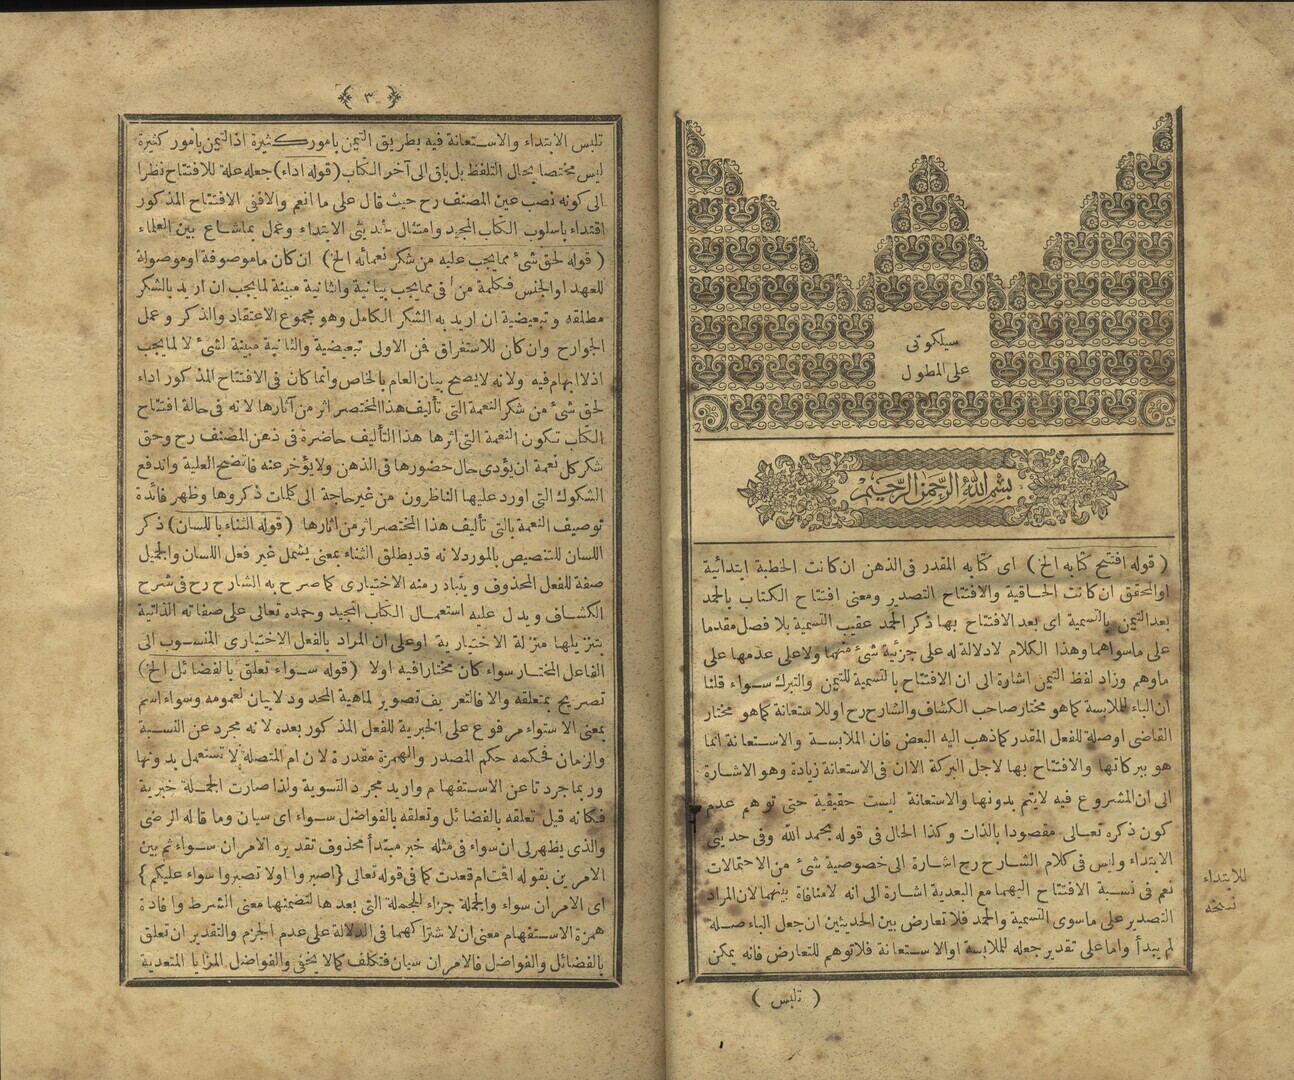 سيلكوتى
على المطول
بسم الله الرحمن الرحيم
( قوله افتتح كتابه الخ ) اى كتابه المقدر فى الذهن ان كانت الخطبة ابتدائية
او المحقق ان كانت الحاقية والافتتاح التصدير ومعنى افتتاح الكتاب بالحمد
بعد التيمن بالتسمية اى بعد الافتتاح بها ذكر الحمد عقيب التسمية بلا فصل مقدما
على ماسواهما وهذا الكلام لادلالة له على جزئية شئ منهما ولاعلى عدمها على
ماوهم وزاد لفظ التيمن اشارة الى ان الافتتاح بالتسمية للتيمن والتبرك سواء قلنا
ان الباء للملابسة كماهو مختار صاحب الكشاف والشارح رح او للاستعانة كماهو مختار
القاضى اوصلة للفعل المقدر كماذهب اليه البعض فان الملابسة والاستعانة انما
هو ببركاتها والافتتاح بها لاجل البركة الاان فى الاستعانة زيادة وهو الاشارة
الى ان المشروع فيه لايتم بدونها والاستعانة ليست حقيقية حتى توهم عدم
كون ذكره تعالى مقصودا بالذات وكذا الحال فى قوله بحمد الله وفى حديثى
الابتداء وليس فى كلام الشارح رح اشارة الى خصوصية شئ من الاحتمالات
نعم فى نسبة الافتتاح اليهما مع البعدية اشارة الى انه لامنافاة بينهما لان المراد
التصدير على ماسوى التسمية والحمد فلا تعارض بين الحديثين ان جعل الباء صلة
لم يبدأ واما على تقدير جعله للملابسة او الاستعانة فلاتوهم للتعارض فانه يمكن
للابتداء
نسخه
( تلبس )
( ٣ )
تلبس الابتداء والاستعانة فيه بطريق التيمن بامور كثيرة اذ التيمن بامور كثيرة
ليس مختصا بحال التلفظ بل باق الى آخر الكتاب ( قوله اداء ) جعله علة للافتتاح نظرا
الى كونه نصب عين المصنف رح حيث قال على ما انعم والافنى الافتتاح المذكور
اقتداء باسلوب الكتاب المجيد وامتثال بحديثى الابتداء وعمل بماشاع بين العلماء
( قوله لحق شئ مما يجب عليه من شكر نعمائه الخ ) ان كان ما موصوفة او موصولة
للعهد او الجنس فكلمة من فى مما يجب بيانية والثانية مبينة لمايجب ان اريد بالشكر
مطلقه وتبعيضية ان اريد به الشكر الكامل وهو مجموع الاعتقاد والذكر وعمل
الجوارح وان كان للاستغراق فمن الاولى تبعيضية والثانية مبينة لشئ لا لمايجب
اذلا ابهام فيه ولانه لايصح بيان العام بالخاص وانما كان فى الافتتاح المذكور اداء
لحق شئ من شكر النعمة التى تأليف هذا المختصر اثر من آثارها لانه فى حالة افتتاح
الكتاب تكون النعمة التى اثرها هذا التأليف حاضرة فى ذهن المصنف رح وحق
شكر كل نعمة ان يؤدى حال حضورها فى الذهن ولا يؤخر عنه فاتضح العلية واندفع
الشكوك التى اورد عليها الناظرون من غير حاجة الى كلمات ذكروها وظهر فائدة
توصيف النعمة بالتى تأليف هذا المختصر اثر من اثارها ( قوله الثناء باللسان ) ذكر
اللسان للتنصيص بالمورد لانه قد يطلق الثناء بمعنى يشمل غير فعل اللسان والجميل
صفة للفعل المحذوف ويتبادر منه الاختيارى كما صرح به الشارح رح فى شرح
الكشاف ويدل عليه استعمال الكتاب المجيد وحمده تعالى على صفاته الذاتية
بتنزيلها منزلة الاختيارية او على ان المراد بالفعل الاختيارى المنسوب الى
الفاعل المختار سواء كان مختارا فيه اولا ( قوله سواء تعلق بالفضائل الخ )
تصريح بمتعلقه والا فالتعريف تصوير لماهية المحدود لابيان لعمومه وسواء اسم
بمعنى الاستواء مرفوع على الخبرية للفعل المذكور بعده لانه مجرد عن النسبة
والزمان فحكمه حكم المصدر والهمزة مقدرة لان ام المتصلة لاتستعمل بدونها
وربما جردتا عن الاستفهام واريد مجرد التسوية ولذا صارت الجملة خبرية
فكانه قيل تعلقه بالفضائل وتعلقه بالفواضل سواء اى سيان وما قاله الرضى
والذى يظهر لى ان سواء فى مثله خبر مبتدأ محذوف تقديره الامران سواء ثم بين
الامرين بقوله اقمت ام قعدت كما فى قوله تعالى { اصبروا اولا تصبروا سواء عليكم }
اى الامران سواء والجملة جزاء للجملة التى بعدها لتضمنها معنى الشرط وافادة
همزة الاستفهام معنى ان لاشتراكهما فى الدلالة على عدم الجزم والتقدير ان تعلق
بالفضائل والفواضل فالامران سيان فتكلف كما لايخفى والفواضل المزايا المتعدية